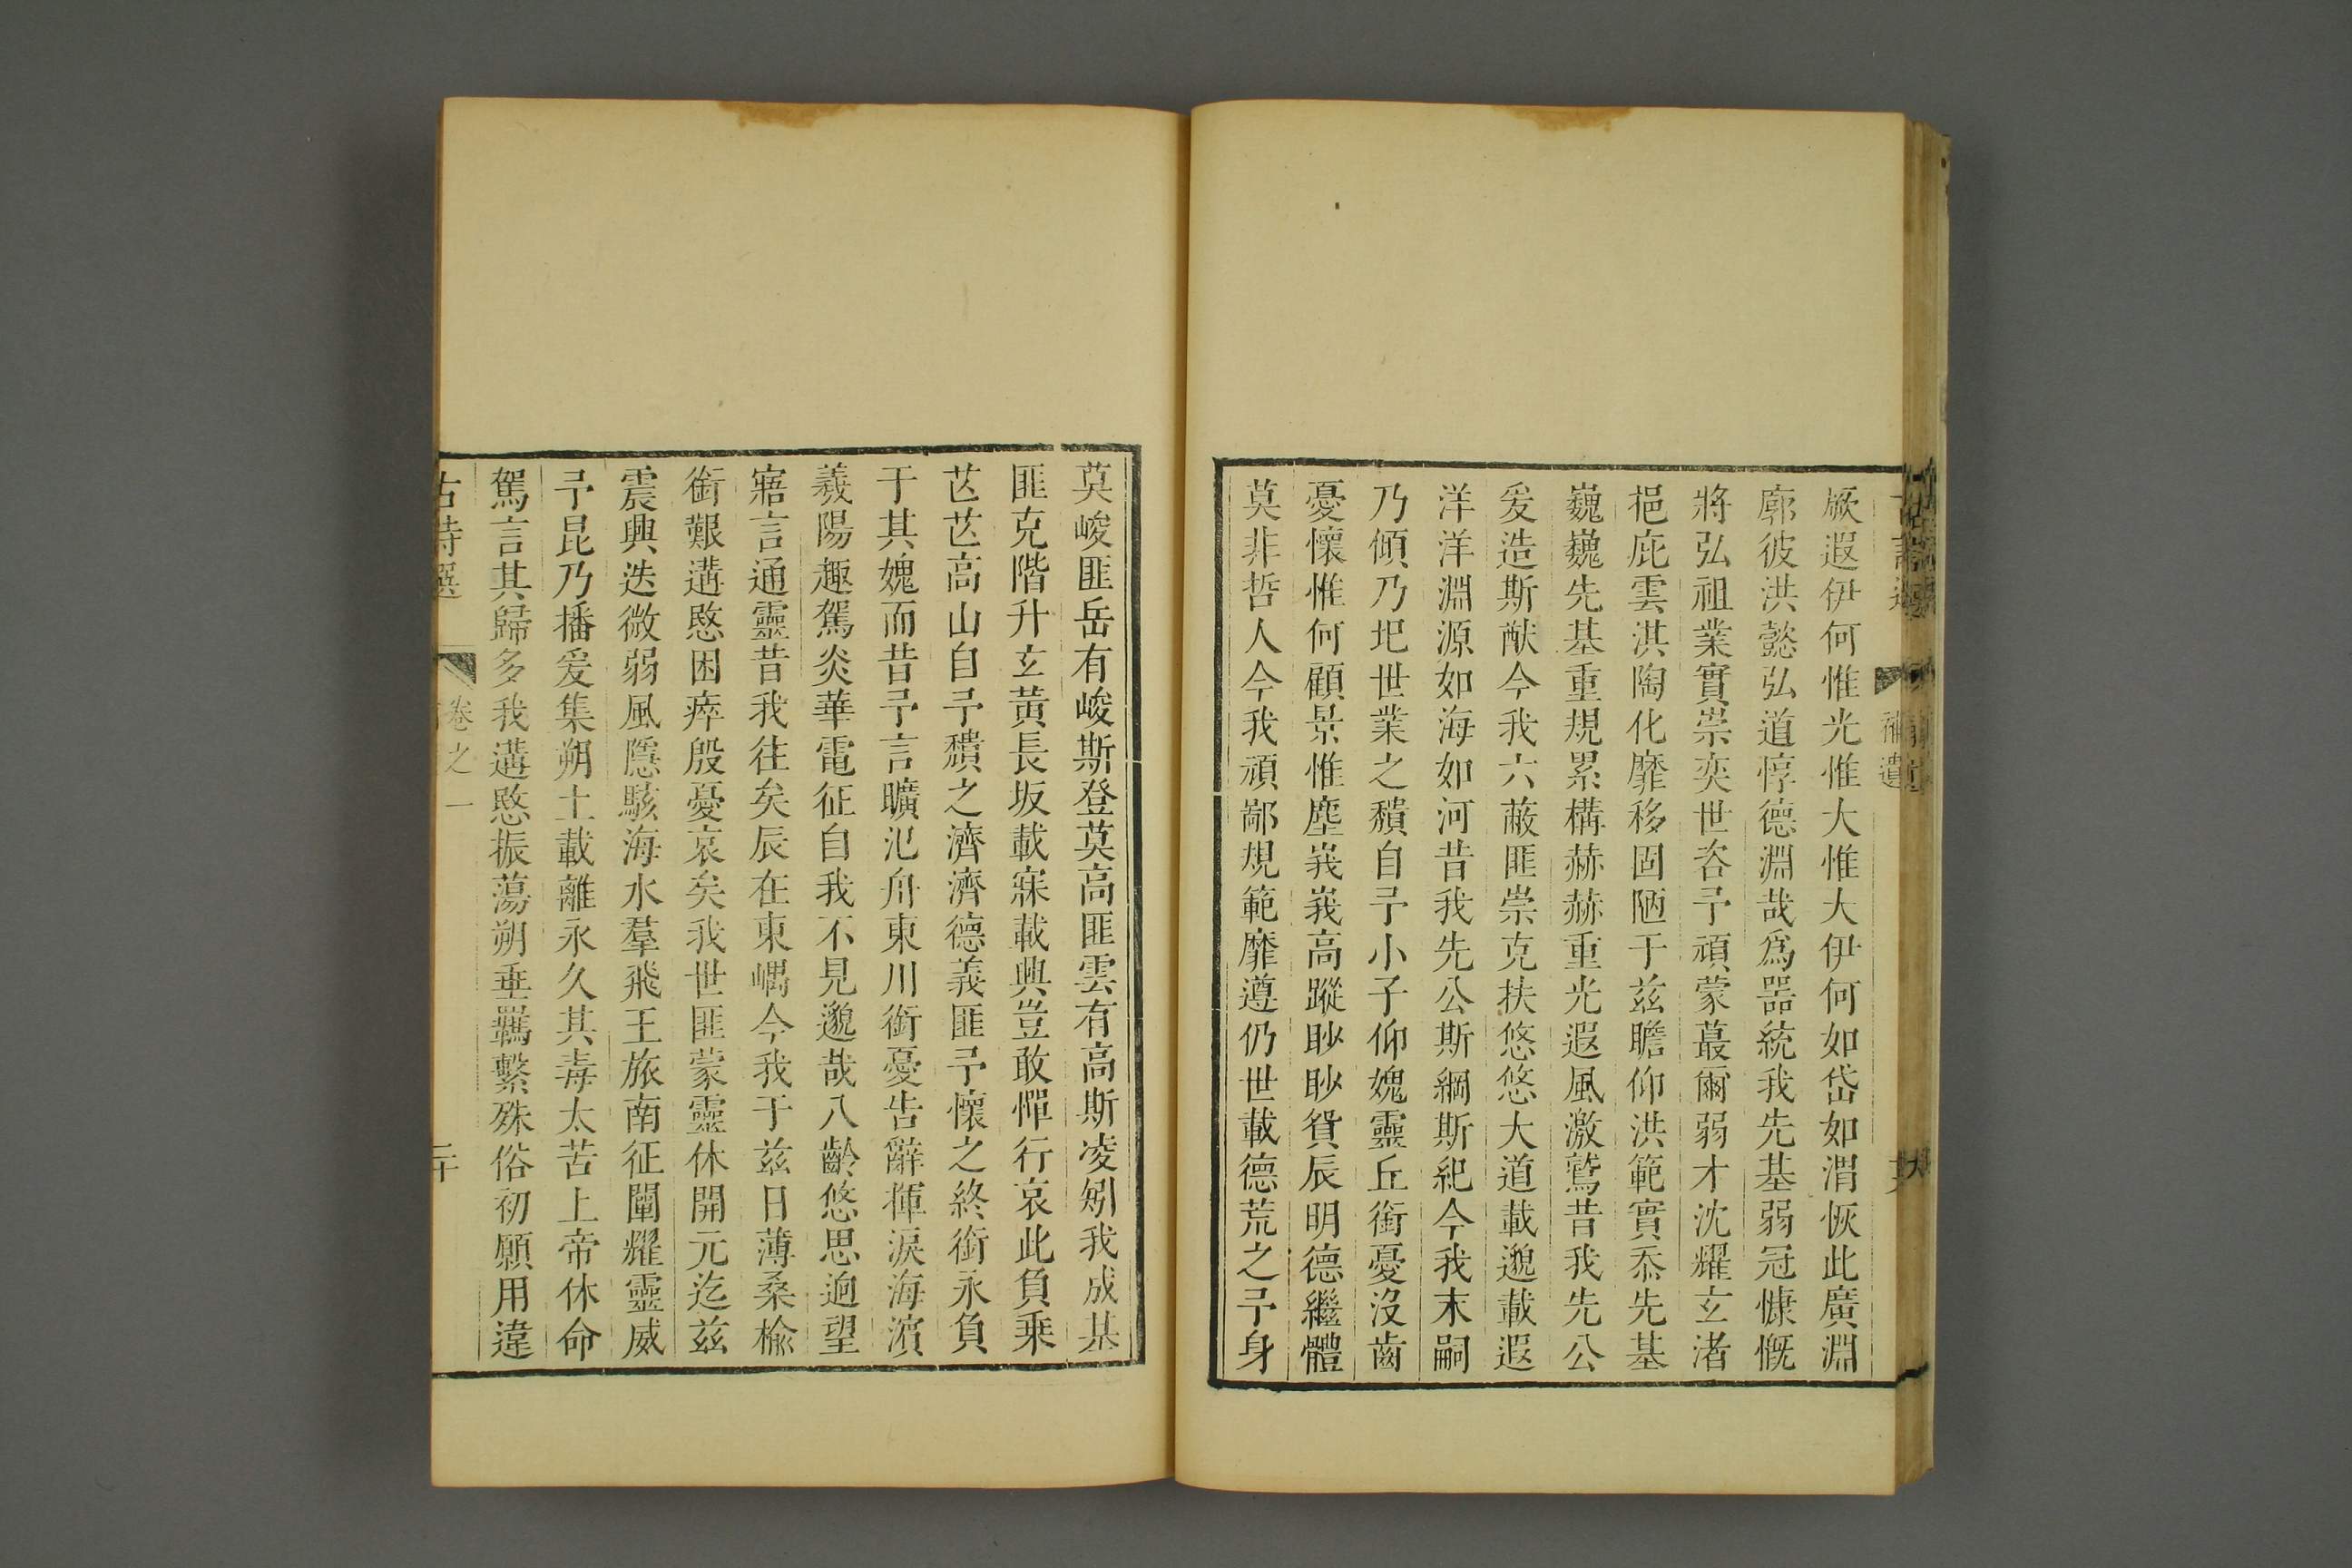 厥遐伊何惟光惟大惟大伊何如岱如渭恢此廣淵
廓彼洪懿弘道惇德淵哉爲噐統我先基弱冠慷慨
將弘祖業實崇奕世咨予頑蒙蕞爾弱才沈耀玄渚
挹庇雲淇陶化靡移固陋于兹瞻仰洪範實忝先基
巍巍先基重規累構赫赫重光遐風激鶩昔我先公
爰造斯猷今我六蔽匪崇克扶悠悠大道載邈載遐
洋洋淵源如海如河昔我先公斯綱斯紀今我末嗣
乃傾乃圯世業之穨自予小子仰媿靈丘銜憂沒齒
憂懷惟何顧景惟塵峩峩高蹤眇眇貧辰明德繼體
莫非哲人今我頑鄙規範靡遵仍世載德荒之予身
莫峻匪岳有峻斯登莫高匪雲有高斯凌矧我成基
匪克階升玄黃長坂載寐載興豈敢憚行哀此負乗
芒芒高山自予穨之濟濟德義匪予懷之終銜永負
于其媿而昔予言曠汜舟東川銜憂告辭揮淚海濵
羲陽趣駕炎華電征自我不見邈哉八齡悠思迥望
寤言通靈昔我往矣辰在東嵎今我于兹日薄桑榆
銜艱遘愍困瘁殷憂哀矣我世匪蒙靈休開元迄兹
震興迭微弱風隱駭海水羣飛王旅南征闡耀靈威
予昆乃播爰集朔土載離永久其毒太苦上帝休命
駕言其歸多我遘愍振蕩朔垂羈繫殊俗初願用違
古詩選
卷之一
二十